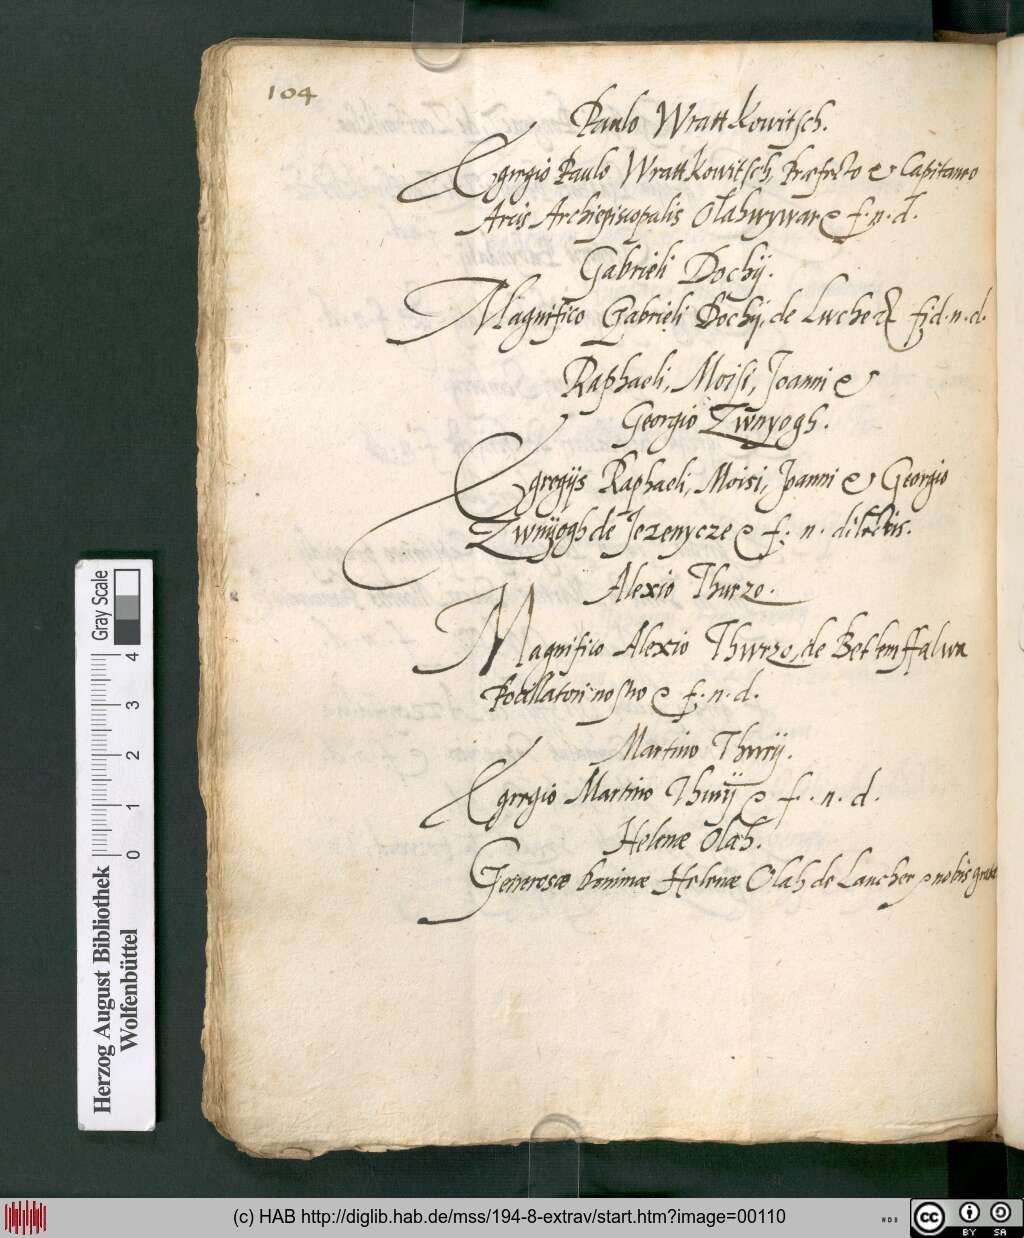 104
Paulo Wrattkowitsch.
Egregio Paulo Wrattkowitsch, Præfecto & Capitaneo
Arcis Archiepiscopalis Olahwywar & f. n. d.
Gabrieli Dochÿ.
Magnifico Gabrieli Dochÿ, de & f. d. n. d.
Raphaeli, Moisi, Joanni &
Georgio Zwnyogh.
Egregijs Raphaeli, Moisi, Joanni & Georgio
Zwnÿogh de Jezenycze & f. n. dilectis.
Alexio Thurzo.
Magnifico Alexio Thwrzo, de Betlemffalwa
Pocillatori nostro & f. n. d.
Martino Thurÿ.
Egregio Martino Thurÿ & f. n. d.
Helenæ Olah.
Generosæ Dominæ Helenæ Olah de Lancher & nobis gratæ
Gray Scale
4 3 2 1 0
Herzog August Bibliothek
Wolfenbüttel
(c) HAB http://diglib.hab.de/mss/194-8-extrav/start.htm?image=00110
WDB
cc
BY SA